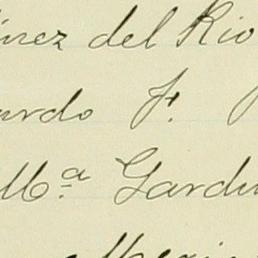 ínez del Rio
ardo F.
Mª Gardu